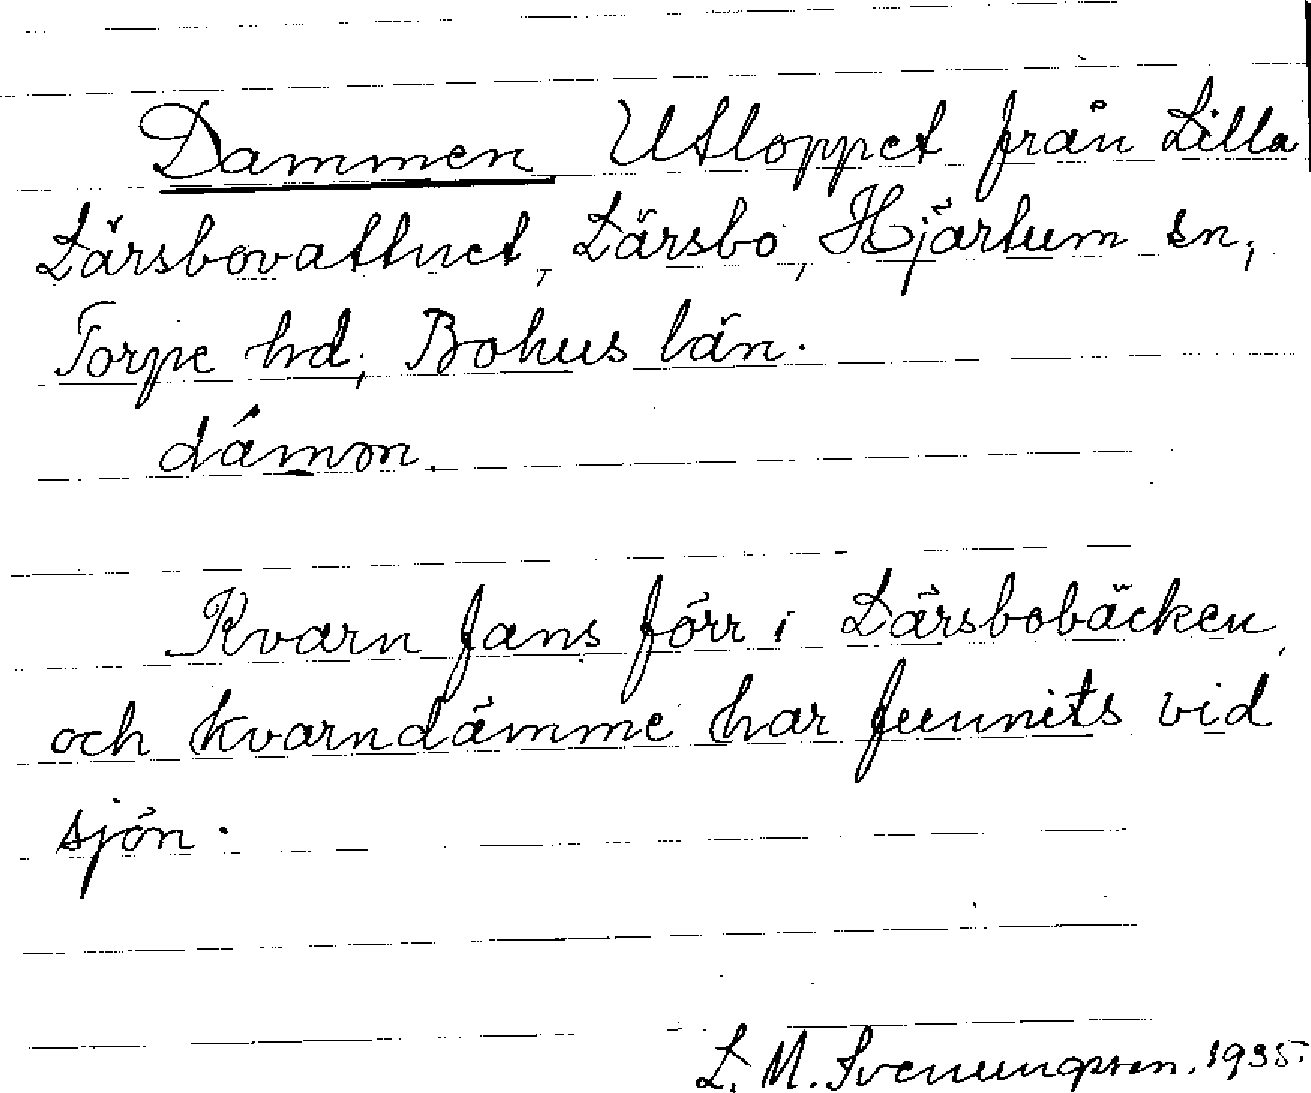 Dammen Utloppet från Lilla
Lärsbovattnet, Lärsbo, Hjärtum sn,
Torpe hd, Bohus län.
dámon.
Kvarn fans förr i Lärsbobäcken
och kvarndämme har funnits vid
sjön.
L. M. Svenungsson. 1935.